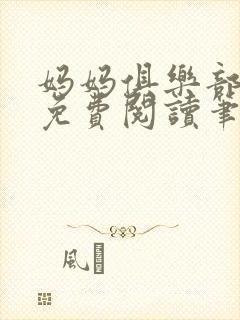 妈妈俱樂部
免費閱讀筆
風